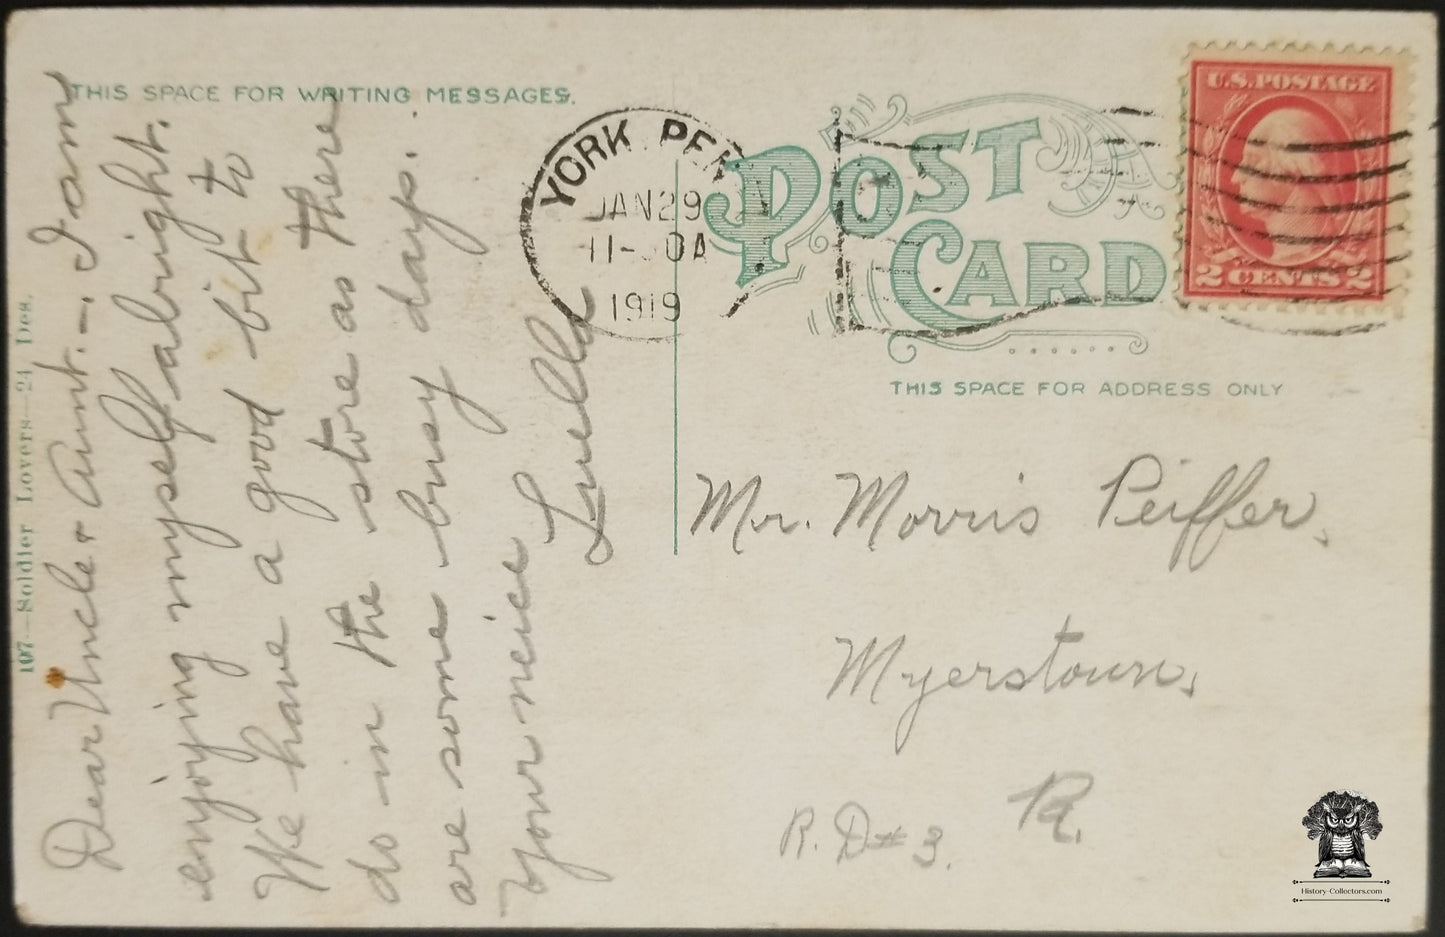 THIS SPACE FOR WRITING MESSAGES.
107—Soldier Lovers—24 Des.
Dear Uncle & Aunt.—, I am
enjoying myself alright.
We have a good bit to
do in the store as there
are some busy days.
Your neice
Luella
YORK PEN
JAN 29
11- 0A
1919
POST
CARD
U.S. POSTAGE
2 CENTS 2
THIS SPACE FOR ADDRESS ONLY
Mr. Morris Peiffer,
Myerstown,
Pa.
R.D# 3.
History-Collectors.com